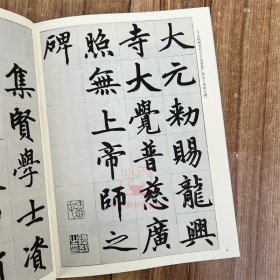 大元勑賜龍興
寺大覺普慈廣
照無上帝師之
碑
集賢學士資